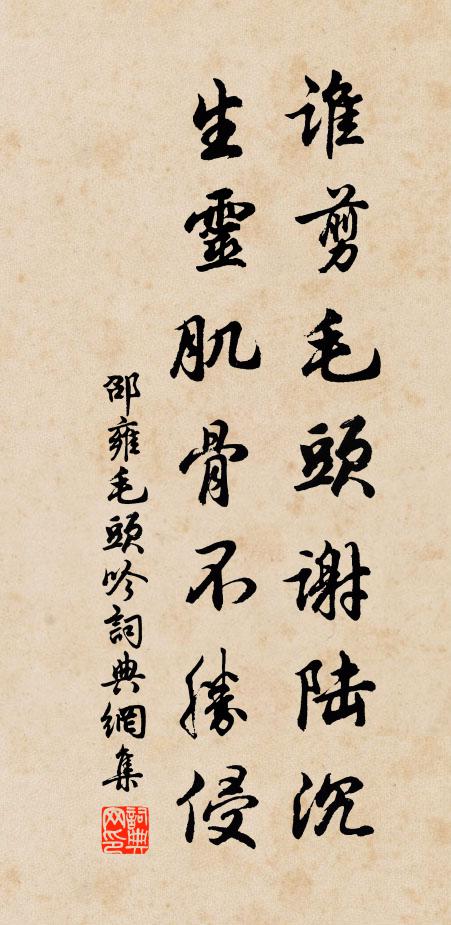 谁剪毛頭謝陆沉
生靈肌骨不勝侵
邵雍毛頭吟詞典網集
詞典网印